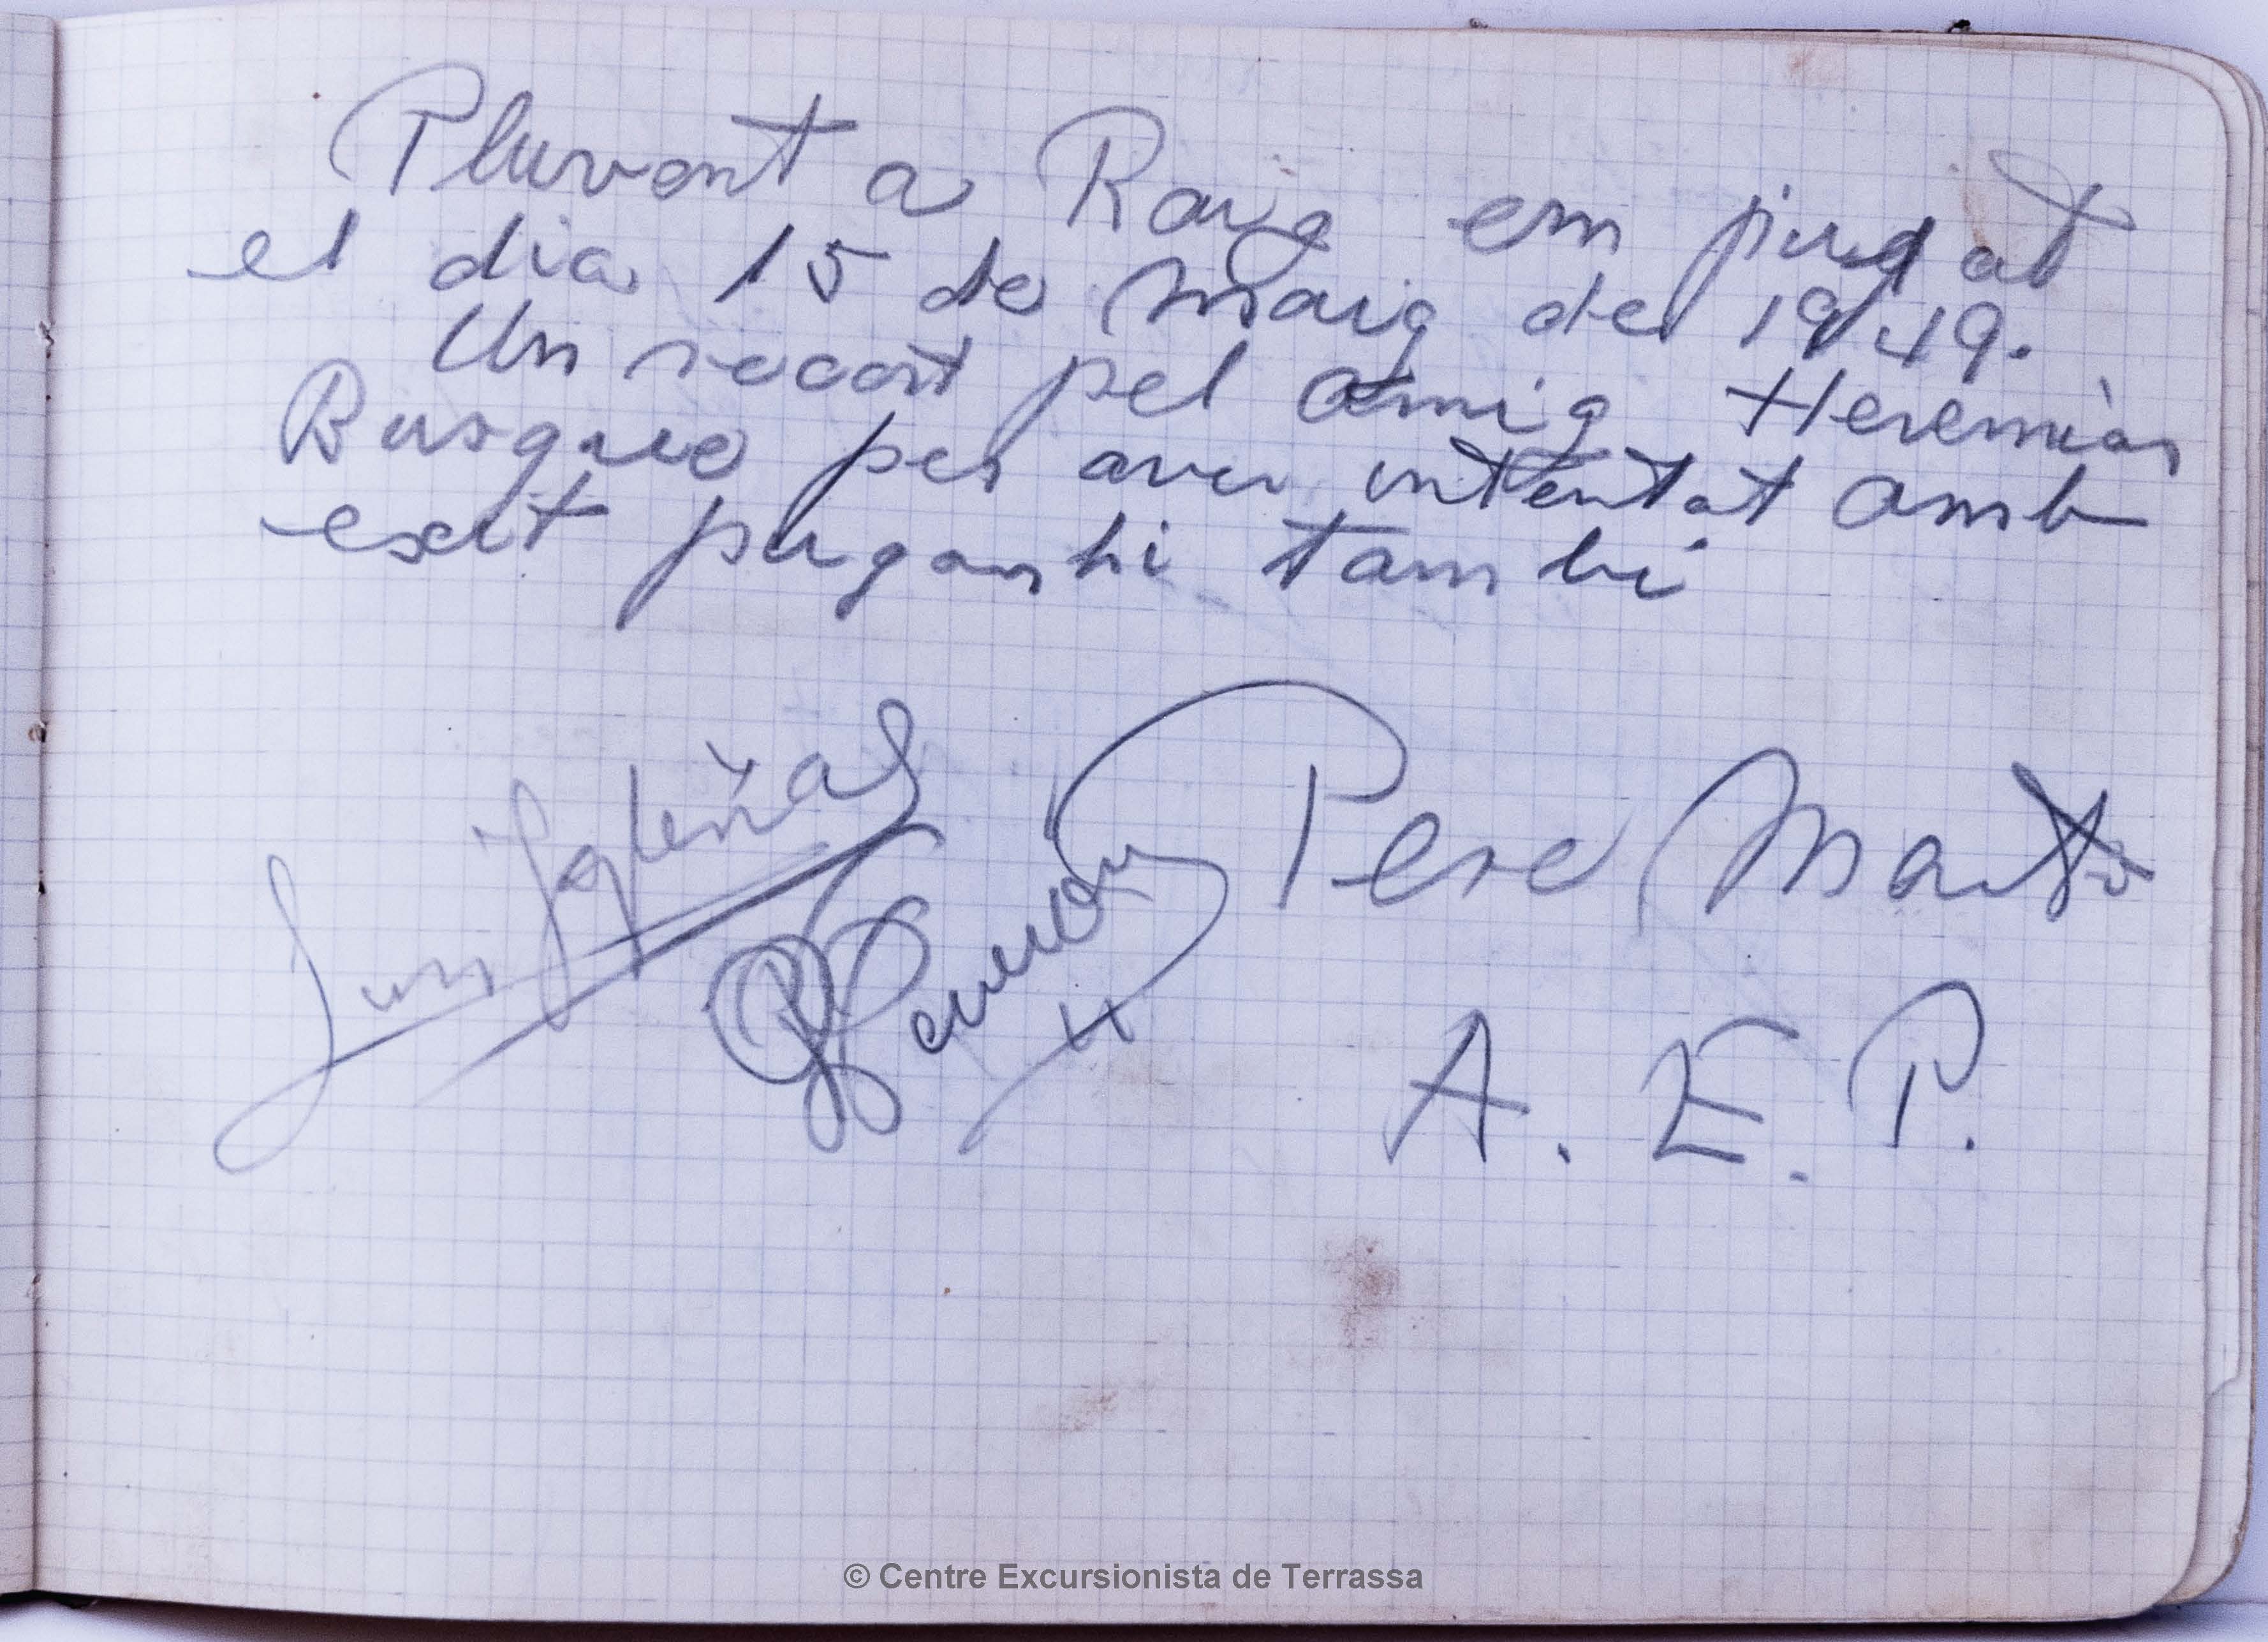 Pluvent a Raig em pujat
el dia 15 de Maig del 1949.
Un record pel amig Heremias
Busque per aver intentat amb
exit puganhi també
Luis Iglesias
Pere Marti
A. E. P.
© Centre Excursionista de Terrassa